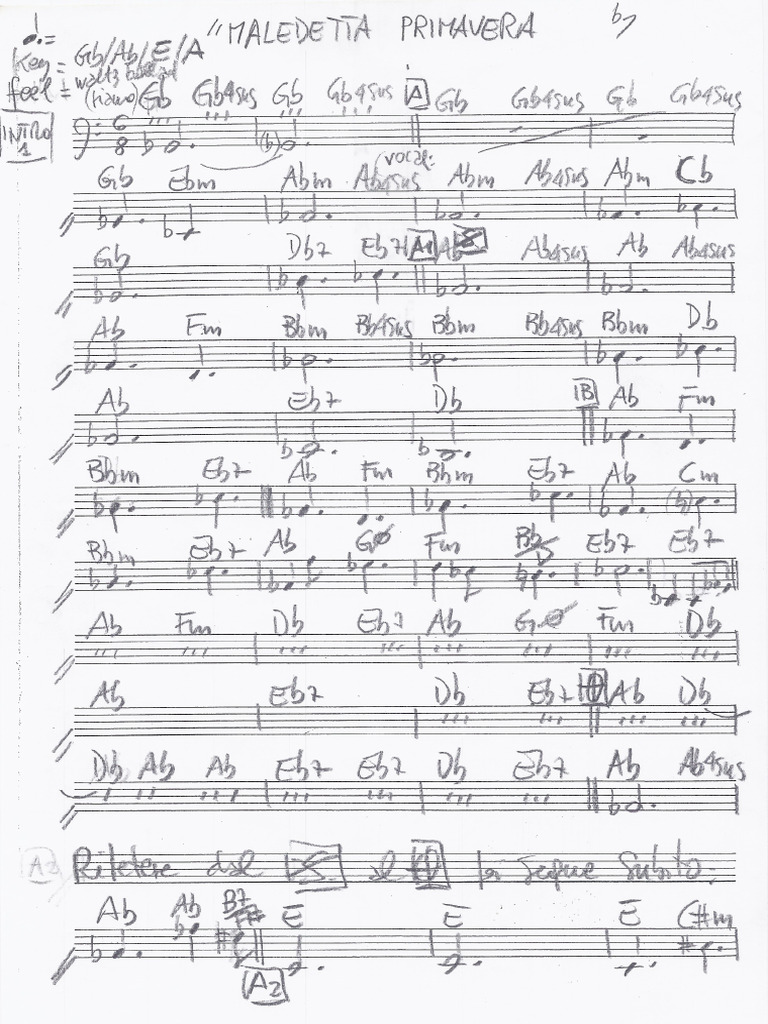 "MALEDETTA PRIMAVERA by
Key = Gb/Ab/E/A
feel =
(piano) Gb Gb4sus Gb Gb4sus A Gb Gb4sus Gb Gb4sus
INTRO 1 6/8
(vocal:
Gb Ebm Abm Ab4sus Abm Ab4sus Abm Cb
Gb Db7 Eb7 A1 Ab Ab4sus Ab Ab4sus
Ab Fm Bbm Bb4sus Bbm Bb4sus Bbm Db
Ab Eb7 Db B Ab Fm
Bbm Eb7 Ab Fm Bbm Eb7 Ab Cm
Bbm Eb7 Ab GØ Fm Bb/D Eb7 Eb7
Ab Fm Db Eb7 Ab GØ Fm Db
Ab Eb7 Db Eb7 Ab Db
Db Ab Ab Eb7 Eb7 Db Eb7 Ab Ab4sus
A2 Ripetere dal al poi segue subito.
Ab Ab B7/F# E E E C#m
A2